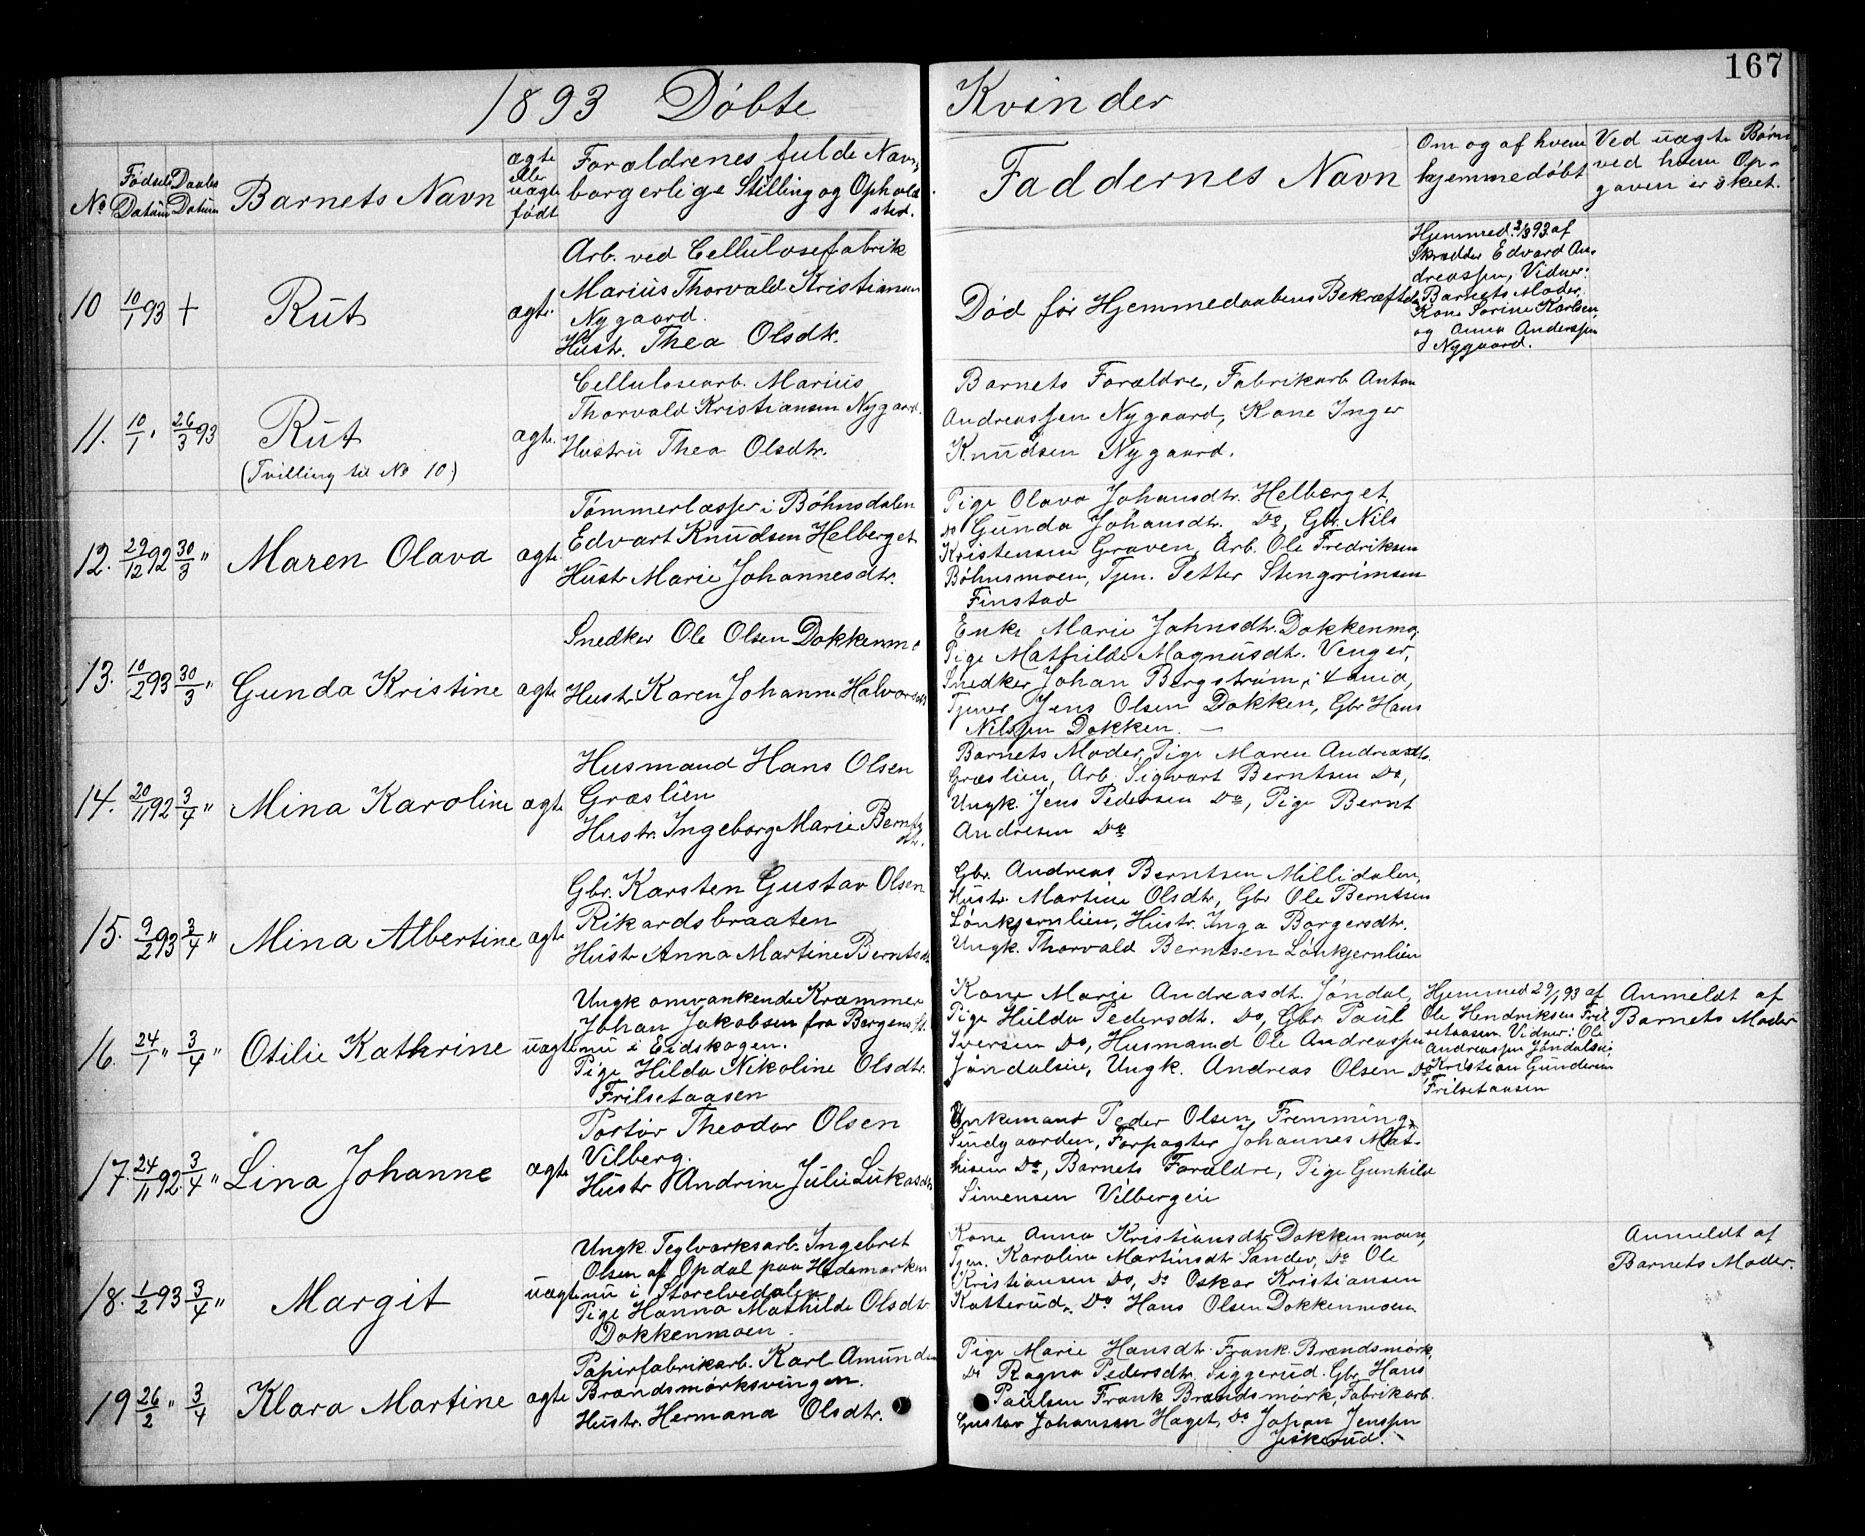 167
1893 Döbte Kvinder
No
Födsels Datum
Daabs Datum
Barnets Navn
ægte eller uægte födt
Forældrenes fulde Navn,
borgerlige Stilling og Opholdssted.
Faddernes Navn
Om og af hvem
hjemmedöbt
Ved uægte Börn
ved hvem Op-
gaven er skeet.
10 10/1 93 + Rut ægte
Arb. ved Cellulosefabrik
Marius Thorvald Kristiansen
Nygaard.
Hustr. Thea Olsdtr.
Död för Hjemmedaabens Bekræftelse
Hjemmed. 2/3 93 af
Skrædder Edvard An-
dreassen, Vidner:
Barnets Moder,
Kone Sorine Karlsen,
og Anna Anderssen
Nygaard.
11. 10/1 " 26/3 93 Rut ægte
(Tvilling til No 10)
Cellulosearb. Marius
Thorvald Kristiansen Nygaard.
Hustru Thea Olsdtr.
Barnets Forældre, Fabrikarb Anton
Andreassen Nygaard, Kone Inger
Knudsen Nygaard.
12. 29/12 92 30/3 " Maren Olava ægte
Tömmerlæsser i Böhnsdalen
Edvart Knudsen Helberget
Hustr Marie Johannesdtr.
Pige Olava Johansdtr. Helberget
Do Gunda Johansdtr. Do, Gbr. Nils
Kristensen Graven, Arb. Ole Fredriksen
Böhnsmoen, Tjen. Petter Stengrimsen
Finstad
13. 10/2 93 30/3 " Gunda Kristine ægte
Snedker Ole Olsen Dokkenmo
Hustr Karen Johanne Halvorsdtr
Enke Marie Johnsdtr. Dokkenmo,
Pige Mathilde Magnusdtr. Venger,
Snedker Johan Bergström,
Tjener Jens Olsen Dokken, Gbr Hans
Nilssen Dokken.
14. 20/11 92 3/4 " Mina Karoline ægte
Husmand Hans Olsen
Græslien
Hustr. Ingeborg Marie Berntsdtr.
Barnets Moder, Pige Maren Andreasdtr.
Græslien, Arb. Sigvart Berntsen Do,
Ungk. Jens Pedersen Do, Pige Bernt
Andresen Do
15. 9/2 93 3/4 " Mina Albertine ægte
Gbr. Karsten Gustav Olsen
Rikardsbraaten
Hustr Anna Martine Berntsdtr
Gbr. Andreas Berntsen Millidalen,
Hustr. Martine Olsdtr, Gbr Ole Berntsen
Lönkjernlien, Hustr. Inga Borgersdtr.
Ungk. Thorvald Berntsen Lönkjernlien
16. 24/1 " 3/4 " Otilie Kathrine uægte
Ungk omvankende Kræmmer
Johan Jakobsen fra Bergens St.
nu i Eidskogen.
Pige Hilda Nikoline Olsdtr.
Frilsetaasen
Kone Marie Andreasdt. Jöndal,
Pige Hulda Pedersdt. Do, Gbr Paul
Iversen Do, Husmand Ole Andreassen
Jöndalseie, Ungk. Andreas Olsen Do
Hjemmed 29/1 93 af
Ole Hendriksen Fril
setaasen. Vidner: Ole
Andreassen Jöndalseie
Kristian Gundersen
Frilsetaasen
Anmeldt af
Barnets Moder
17. 24/11 92 3/4 " Lina Johanne ægte
Portör Theodor Olsen
Vilberg.
Hustr Andrine Julie Lukasdtr
Enkemand Peder Olsen Fremming,
Sundgaarden, Forpagter Johannes Mat-
hisen Do, Barnets Forældre, Pige Gunhild
Simensen Vilbergeie
18. 1/2 93 3/4 " Margit uægte
Ungk. Teglværksarb. Ingebret
Olsen af Opdal paa Hedemarken
nu i Storelvedalen
Pige Hanna Mathilde Olsdtr
Dokkenmoen.
Kone Anna Kristiansdtr Dokkenmoen,
Tjen. Karoline Martinsdtr Sander, Do Ole
Kristiansen Do, Do Oskar Kristiansen
Katterud, Do Hans Olsen Dokkenmoen
Anmeldt af
Barnets Moder.
19 26/2 " 3/4 Klara Martine ægte
Papirfabrikarb. Karl Amundsen
Brændsmörksvingen.
Hustr. Hermana Olsdtr.
Pige Marie Hansdtr Frank Brændsmörk,
Do Ragna Pedersdtr Siggerud. Gbr Hans
Paulsen Frank Brændsmörk, Fabrikarb.
Gustav Johansen Haget, Do Johan Jenssen